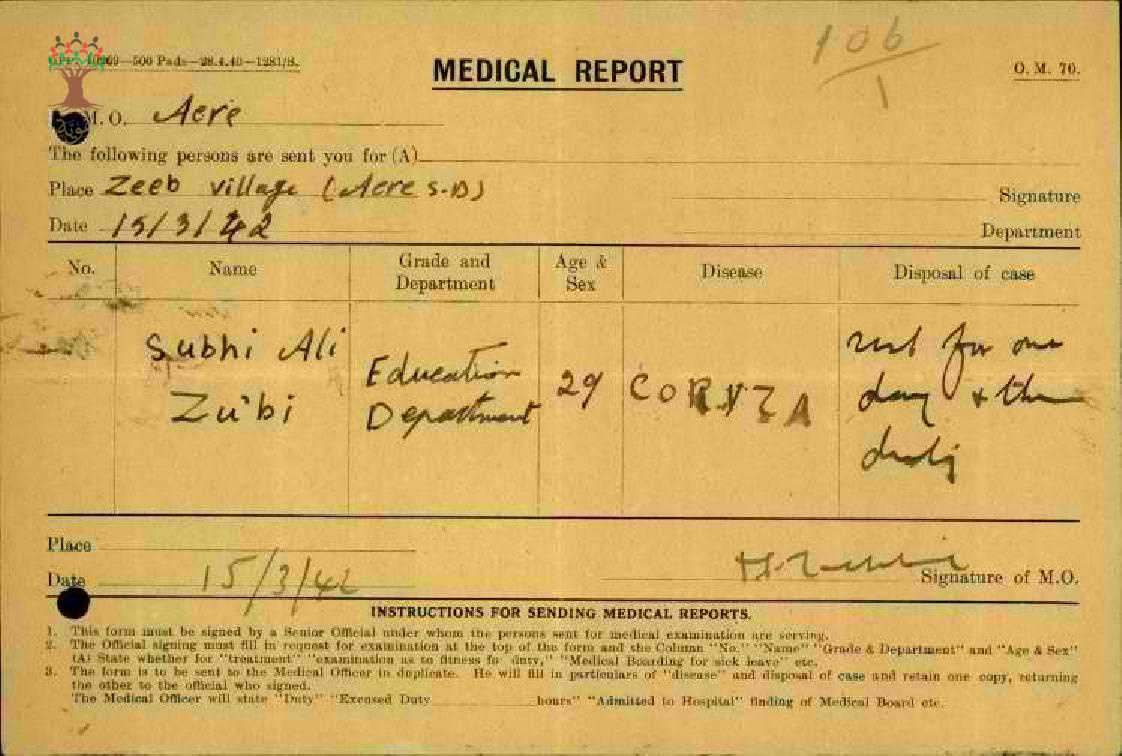 10269—500 Pads—28.4.40—1281/S.
106
1
MEDICAL REPORT
O. M. 70.
M. O. Acre
The following persons are sent you for (A)
Place Zeeb village (Acre S.D)
Signature
Date 15/3/42
Department
No. Name Grade and Department Age & Sex Disease Disposal of case
Subhi Ali
Zu'bi
Education
Department
29
CORYZA
rest for one
day & then
duty
Place
Date 15/3/42
Signature of M.O.
INSTRUCTIONS FOR SENDING MEDICAL REPORTS.
1. This form must be signed by a Senior Official under whom the persons sent for medical examination are serving.
2. The Official signing must fill in request for examination at the top of the form and the Column "No." "Name" "Grade & Department" and "Age & Sex"
(A) State whether for "treatment" "examination as to fitness fo duty," "Medical Boarding for sick leave" etc.
3. The form is to be sent to the Medical Officer in duplicate. He will fill in particulars of "disease" and disposal of case and retain one copy, returning
the other to the official who signed.
The Medical Officer will state "Duty" "Excused Duty hours" "Admitted to Hospital" finding of Medical Board etc.